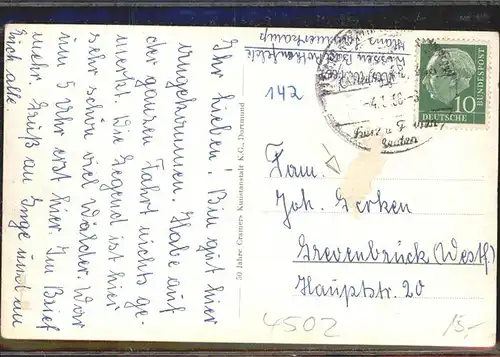 Ihr lieben! Bin gut hier
angekommen. Habe auf
der ganzen Fahrt nichts ge-
merkt. Die Gegend ist hier
sehr schön viel Wälder. War
um 5 Uhr erst hier. Im Brief
mehr Gruß an Inge und an
Euch alle.
50 Jahre Cramers Kunstanstalt K.G., Dortmund
142
10
DEUTSCHE
BUNDESPOST
Fam.
Joh. Gerken
Grevenbrück (Westf)
Hauptstr. 20
4502
15,-